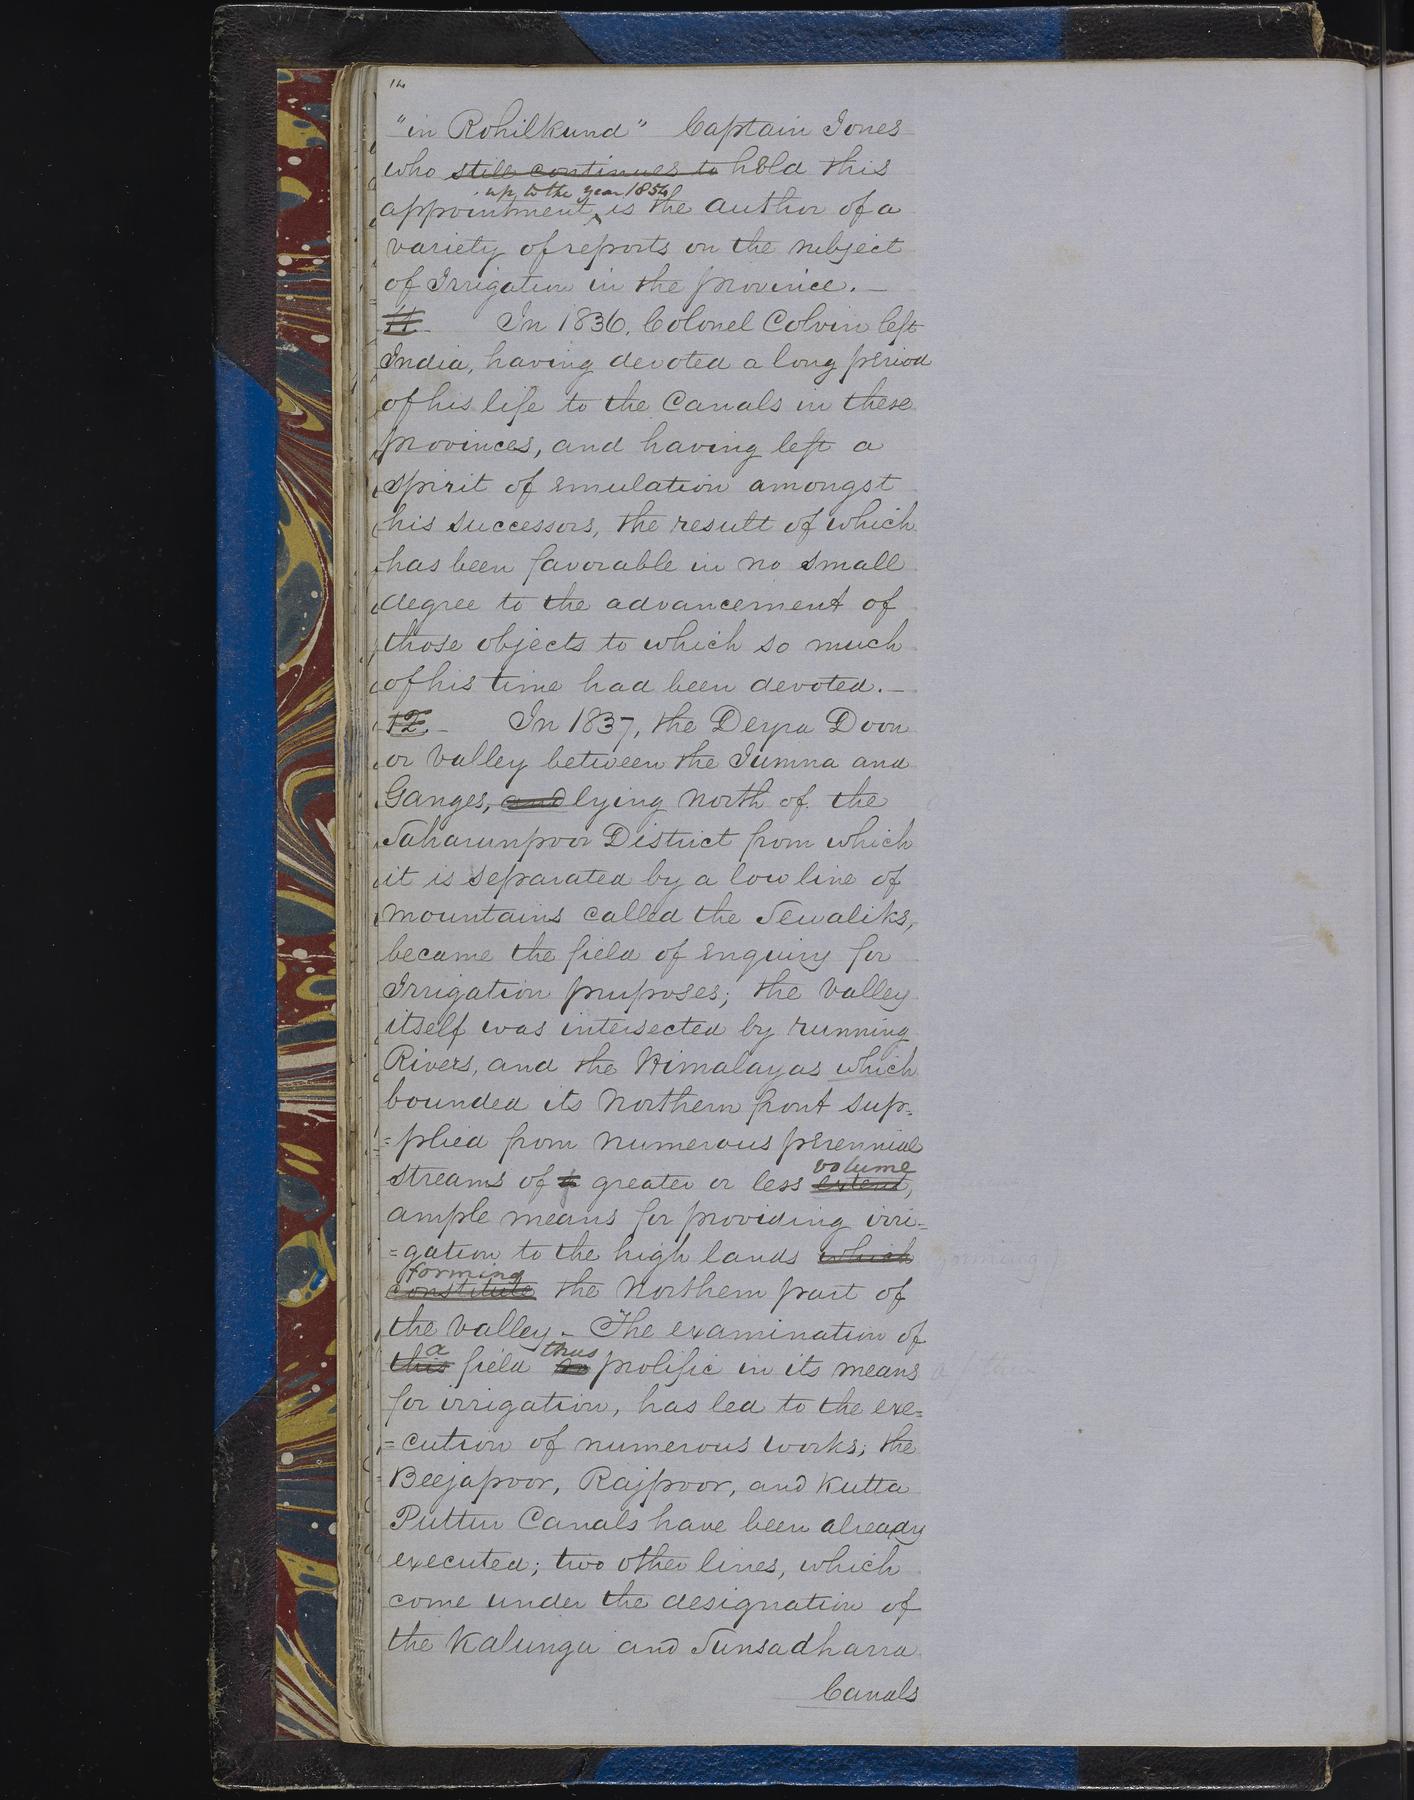 14
"in Rohilkund" Captain Jones
who still continues to held this
up to the year 1854
appointment, is the author of a
variety of reports on the subject
of Irrigation in the province. —
11. In 1836, Colonel Colvin left
India, having devoted a long period
of his life to the Canals in these
provinces, and having left a
spirit of emulation amongst
his successors, the result of which
has been favorable in no small
degree to the advancement of
those objects to which so much
of his time had been devoted. —
12. — In 1837, the Deyra Doon
or valley between the Jumna and
Ganges, and lying North of the
Saharunpoor District from which
it is separated by a low line of
mountains called the Sewaliks,
became the field of enquiry for
Irrigation purposes; the valley
itself was intersected by running
Rivers, and the Himalayas which
bounded its Northern front sup-
=plied from numerous perennial
volume
streams of greater or less extent,
ample means for providing irri=
=gation to the high lands which
forming
constitute the Northern part of
the valley — The examination of
a thus
this field so prolific in its means
for irrigation, has led to the exe=
=cution of numerous works; the
Beejapoor, Rajpoor, and Kutta
Puttur Canals have been already
executed; two other lines, which
come under the designation of
the Kalunga and Sunsadharra
Canals